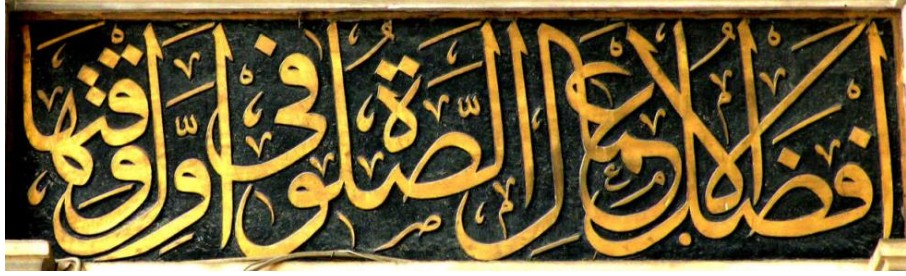 افضل الاعمال الصلوة في اول وقتها